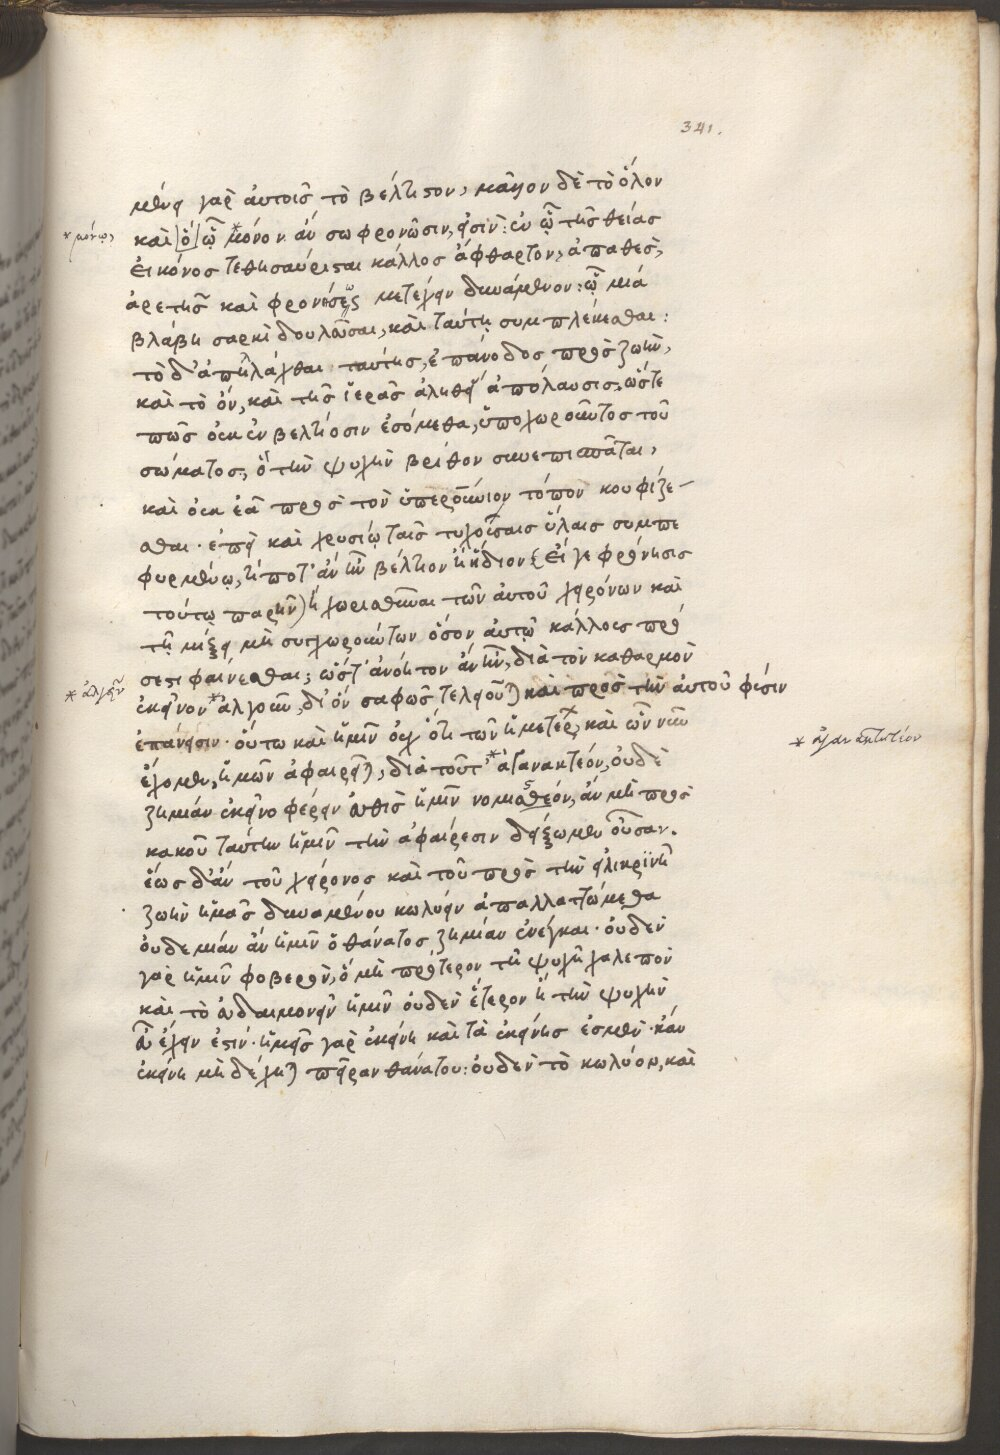 341.
μένει γαρ αυτοίς το βέλτιστον, κᾄλλιον δε το όλον
* μόνῳ,
και [ὁ] ᾧ *μόνον ἀν σωφρονῶσιν, εἰσίν: ἐν ᾧ τῆς θείας
εἰκόνος τεθησαύρισται κάλλος ἄφθαρτον, ἀπαθὲς,
ἀρετῆς καὶ φρονήσεως μετέχειν δυνάμενον: ᾧ μιά
βλάβη σαρκὶ δουλεῦσαι, καὶ ταύτῃ συμπλέκεσθαι:
τὸ δ' ἀπηλλάχθαι ταύτης, ἐπάνοδος πρὸς ζωὴν,
καὶ τὸ ὄν, καὶ τῆς ἱερᾶς ἀληθεῖ ἀπόλαυσις, ὥστε
πῶς οὐκ ἐν βελτίοσιν ἐσόμεθα, ὑποχωροῦντος τοῦ
σώματος, ὃ τὴν ψυχὴν βρίθον συνεπισπᾶται,
καὶ οὐκ ἐᾶ πρὸς τὸν ὑπερουράνιον τόπον κουφίζε-
σθαι. ἐπεὶ καὶ χρυσίῳ ταῖς τυχούσαις ὕλαις συμπε
φυρμένῳ, τί ποτ' ἂν ἦν βέλτιον ἢ ἥδιον (εἴ γε φρόνησις
τούτῳ παρῆν) ἢ χωρισθῆναι τῶν αὐτοῦ χειρόνων καὶ
τῇ μίξει μὴ συγχωρούντων ὅσον αὐτῷ κάλλους πρό
σεστι φαίνεσθαι; ὥστ' ἀνόητον ἂν ἦν, διὰ τὸν καθαρμὸν
* ἀλγεῖν
ἐκεῖνον *ἀλγοῦν, δι' ὃν σαφῶς τελειοῦται καὶ πρὸς τὴν αὐτοῦ φύσιν
ἐπάνεισιν. οὕτω καὶ ἡμῖν οὐχ ὅτι τῶν ἡμετέρων, καὶ ὧν νῦν
* ἀγανακτητέον
ἔχομεν, ἡμῶν ἀφαιρεῖται, διὰ τοῦτ' *ἀγανακτέον, οὐδὲ
ζημίαν ἐκεῖνο φέρειν εὐθὺς ἡμῖν νομιστέον, ἂν μὴ πρὸς
κακοῦ ταύτην ἡμῖν τὴν ἀφαίρεσιν δείξωμεν οὖσαν.
ἕως δ' ἂν τοῦ χείρονος καὶ τοῦ πρὸς τὴν εἰλικρινῆ
ζωὴν ἡμᾶς δυναμένου κωλύειν ἀπαλλαττώμεθα
οὐδεμίαν ἂν ἡμῖν ὁ θάνατος ζημίαν ἐνέγκαι. οὐδὲν
γὰρ ἡμῖν φοβερὸν, ὃ μὴ πρότερον τῇ ψυχῇ χαλεπὸν
καὶ τὸ εὐδαιμονεῖν ἡμῖν οὐδὲν ἕτερον ἢ τὴν ψυχὴν
εὖ ἔχειν ἐστίν. ἡμεῖς γὰρ ἐκείνη καὶ τὰ ἐκείνης ἐσμὲν. κἂν
ἐκείνη μὴ δέχηται πεῖραν θανάτου: οὐδὲν τὸ κωλύον, καὶ